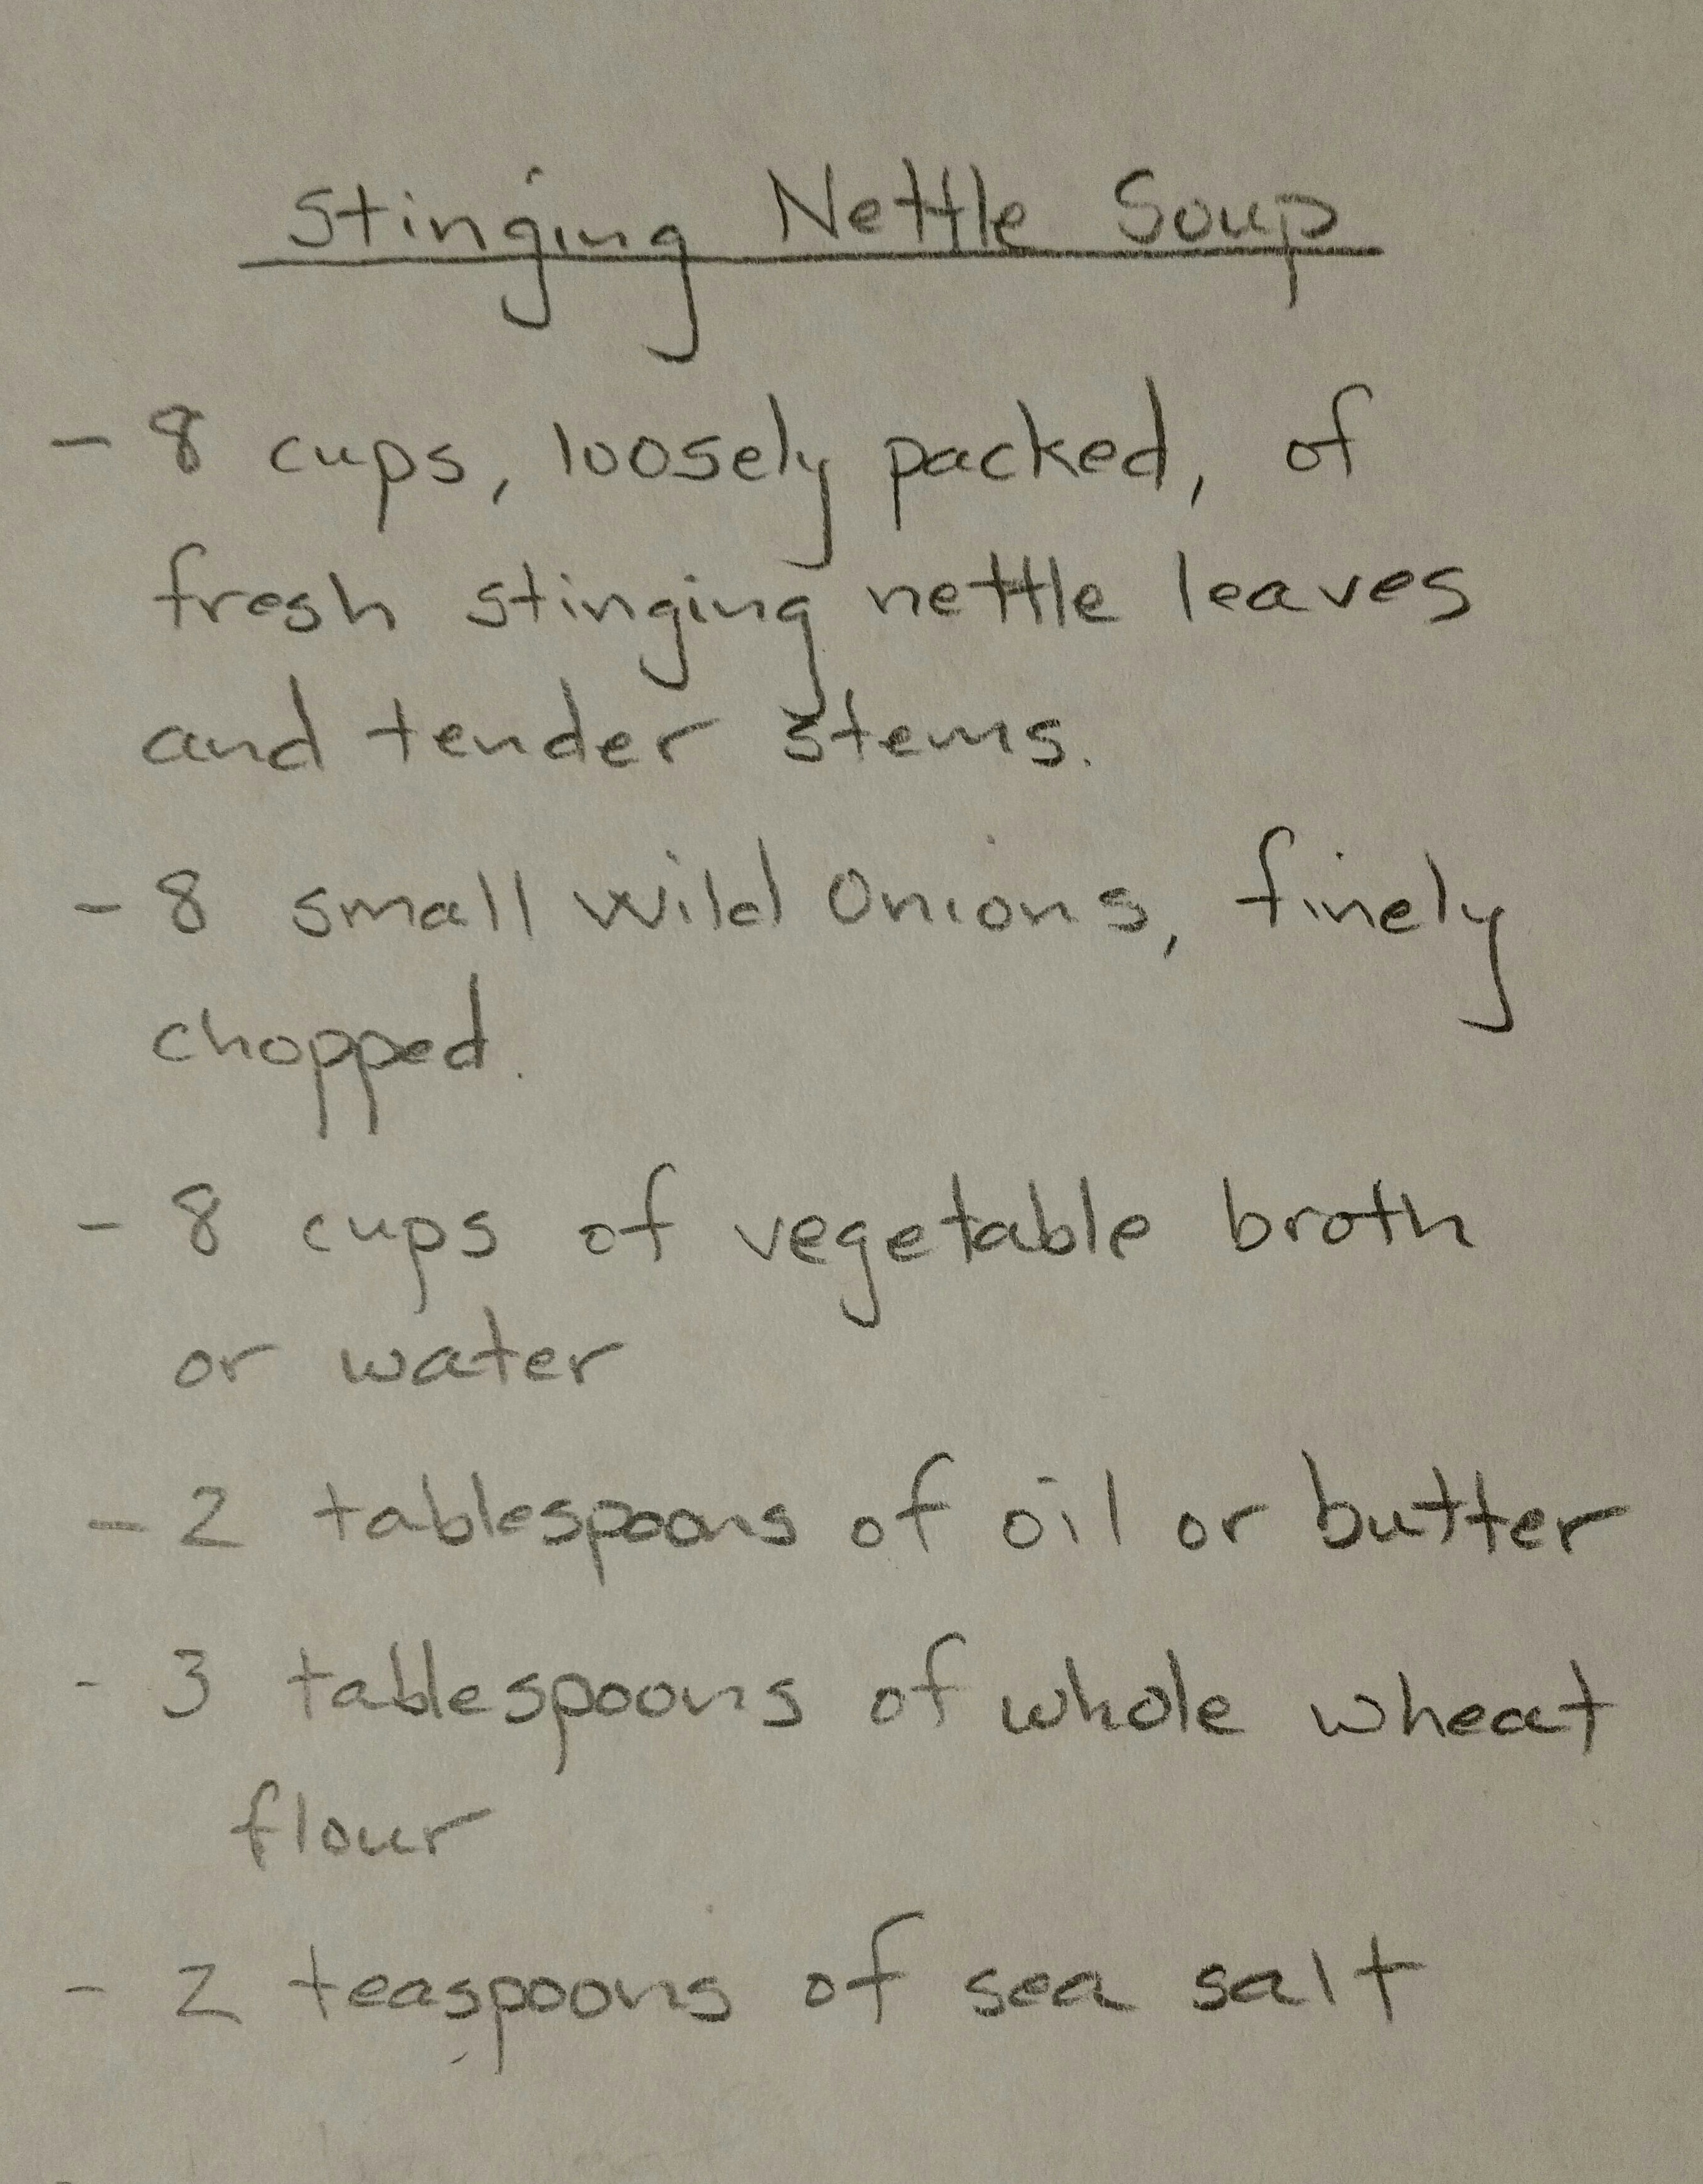 Stinging Nettle Soup
- 8 cups, loosely packed, of
fresh stinging nettle leaves
and tender stems.
- 8 small wild Onions, finely
chopped.
- 8 cups of vegetable broth
or water
- 2 tablespoons of oil or butter
- 3 tablespoons of whole wheat
flour
- 2 teaspoons of sea salt